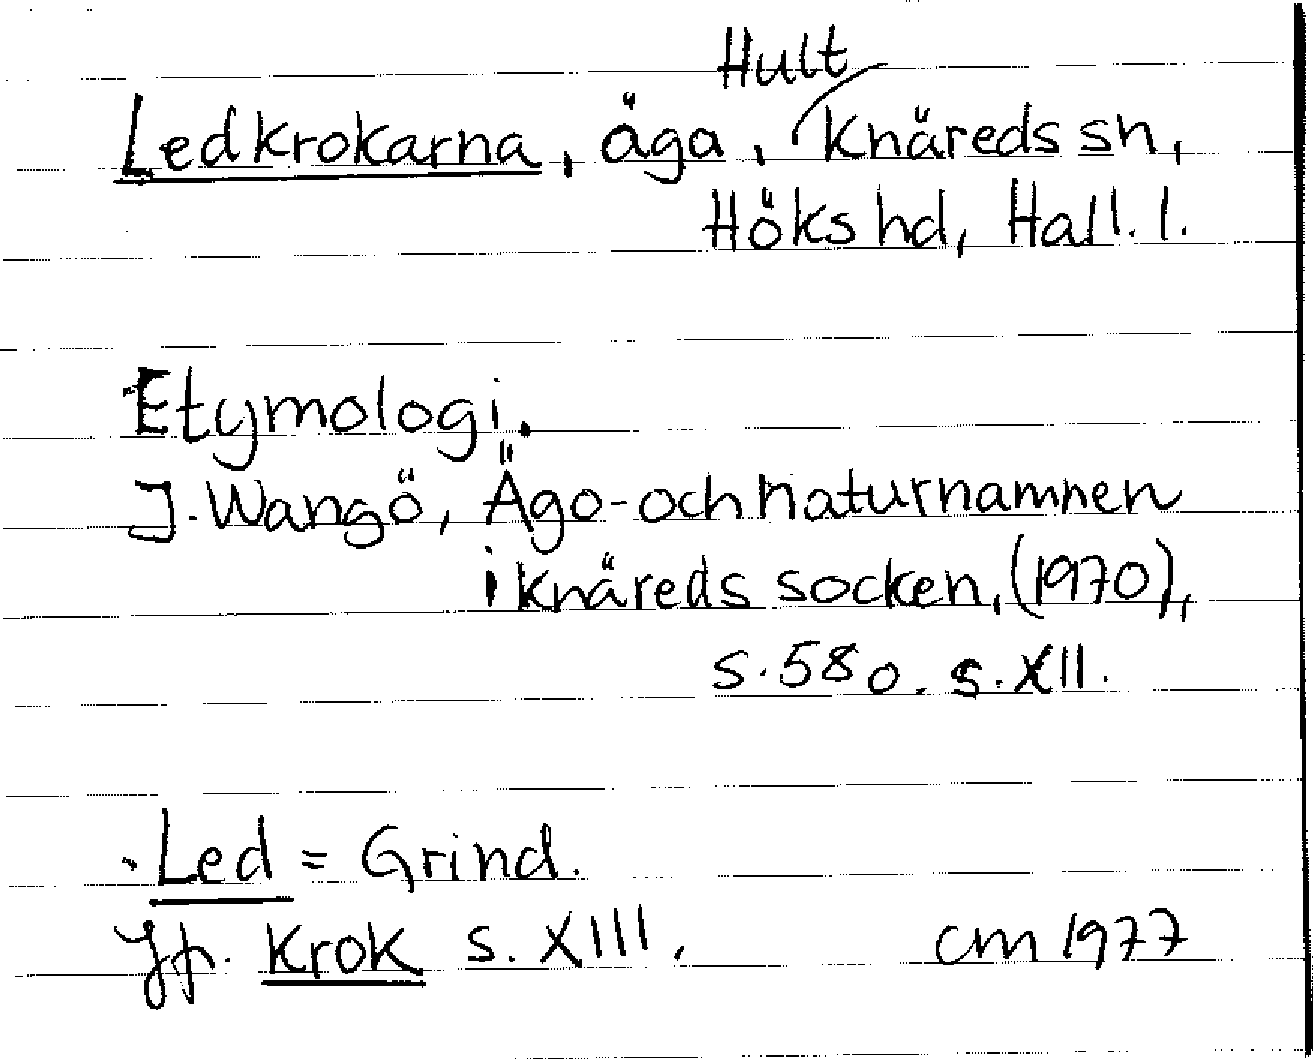 Hult
Ledkrokarna, äga, Knäreds sn,
Höks hd, Hall. l.
Etymologi.
J. Wangö, Ägo- och naturnamnen
i Knäreds socken, (1970),
s. 58 o. s. XII.
Led = Grind.
Jfr. Krok s. XIII.
cm 1977